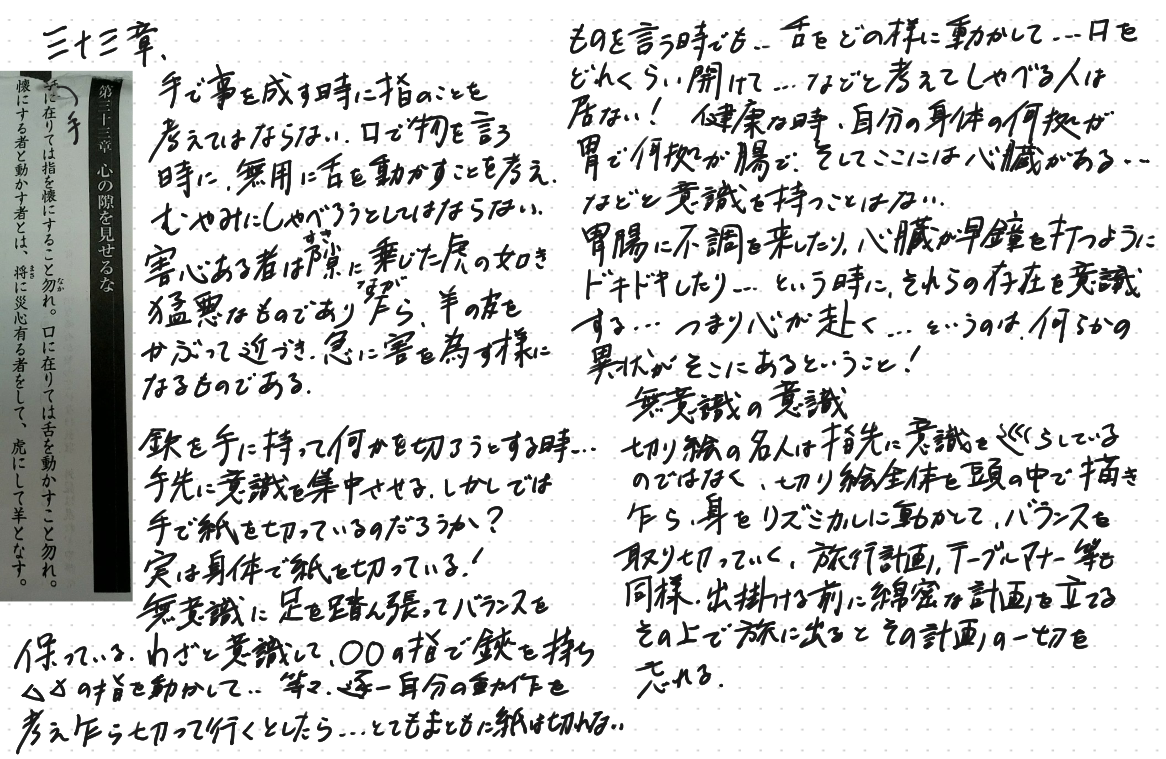 三十三章.
第三十三章 心の隙を見せるな
手に在りては指を懐にすること勿れ。口に在りては舌を動かすこと勿れ。
懐にする者と動かす者とは、将に災心有る者をして、虎にして羊となす。
手
手で事を成す時に指のことを
考えてはならない.口で物を言う
時に、無用に舌を動かすことを考え.
むやみにしゃべろうとしてはならない.
害心ある者は隙に乗じた虎の如き
猛悪なものであり乍ら、羊の皮を
かぶって近づき.急に害を為す様に
なるものである.
鋏を手に持って何かを切ろうとする時…
手先に意識を集中させる.しかしでは
手で紙を切っているのだろうか?
実は身体で紙を切っている!
無意識に足を踏ん張ってバランスを
保っている.わざと意識して、〇〇の指で鋏を持ち
△△の指を動かして‥等々.逐一自分の動作を
考え乍ら切って行くとしたら…とてもまともに紙は切れない
ものを言う時でも‥舌をどの様に動かして…口を
どれくらい開けて…などと考えてしゃべる人は
居ない! 健康な時、自分の身体の何拠が
胃で何拠が腸で、そしてここには心臓がある…
などと意識を持つことはない.
胃腸に不調を来したり、心臓が早鐘を打つように
ドキドキしたり…という時に、それらの存在を意識
する… つまり心が赴く…というのは、何らかの
異状がそこにあるということ!
無意識の意識
切り絵の名人は指先に意識を巡らしている
のではなく、切り絵全体を頭の中で描き
乍ら、身をリズミカルに動かして、バランスを
取り切っていく、旅行計画、テーブルマナー等も
同様.出掛ける前に綿密な計画を立てる
その上で旅に出るとその計画の一切を
忘れる.